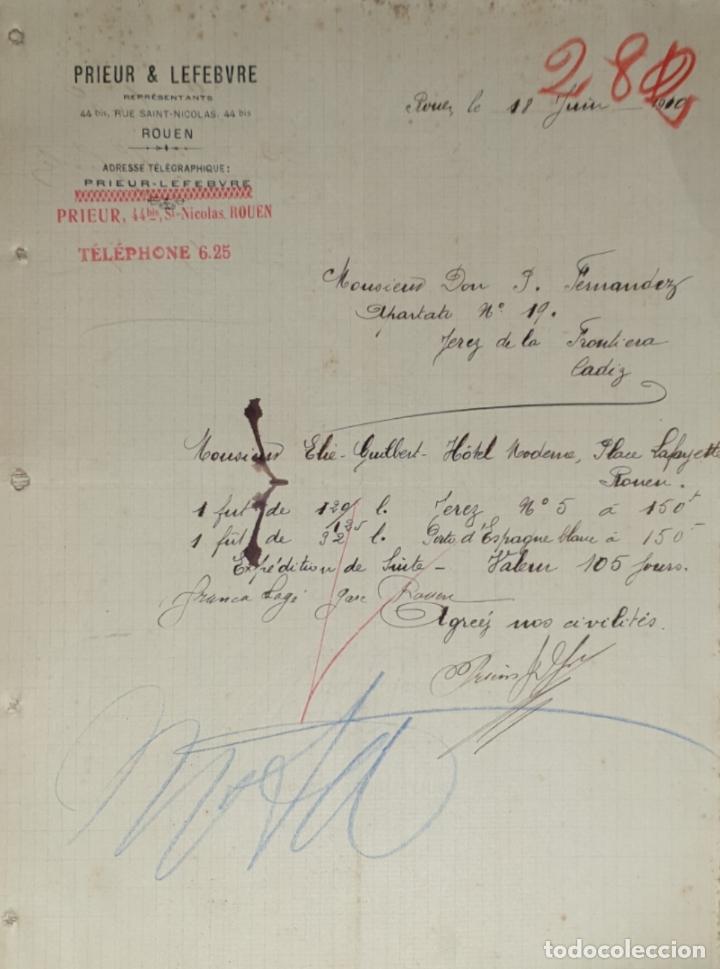 PRIEUR & LEFEBVRE
REPRÉSENTANTS
44 bis, RUE SAINT-NICOLAS, 44 bis
ROUEN
ADRESSE TÉLÉGRAPHIQUE:
PRIEUR-LEFEBVRE
PRIEUR, 44 bis, St-Nicolas, ROUEN
TÉLÉPHONE 6.25
282
Rouen le 18 Juin 1910
Monsieur Don P. Fernandez
Apartato N° 19.
Jerez de la Frontiera
Cadiz
Monsieur Elie Guilbert - Hôtel Moderne, Place Lafayette
Rouen.
1 fut de 129 l. Jerez N° 5 à 150f
135
1 fût de 32 l. Porto d'Espagne blanc à 150f
Expédition de Suite - Valeur 105 jours.
franco logé gare Rouen
Agréez nos civilités.
Nota
todocoleccion
todocoleccion.net